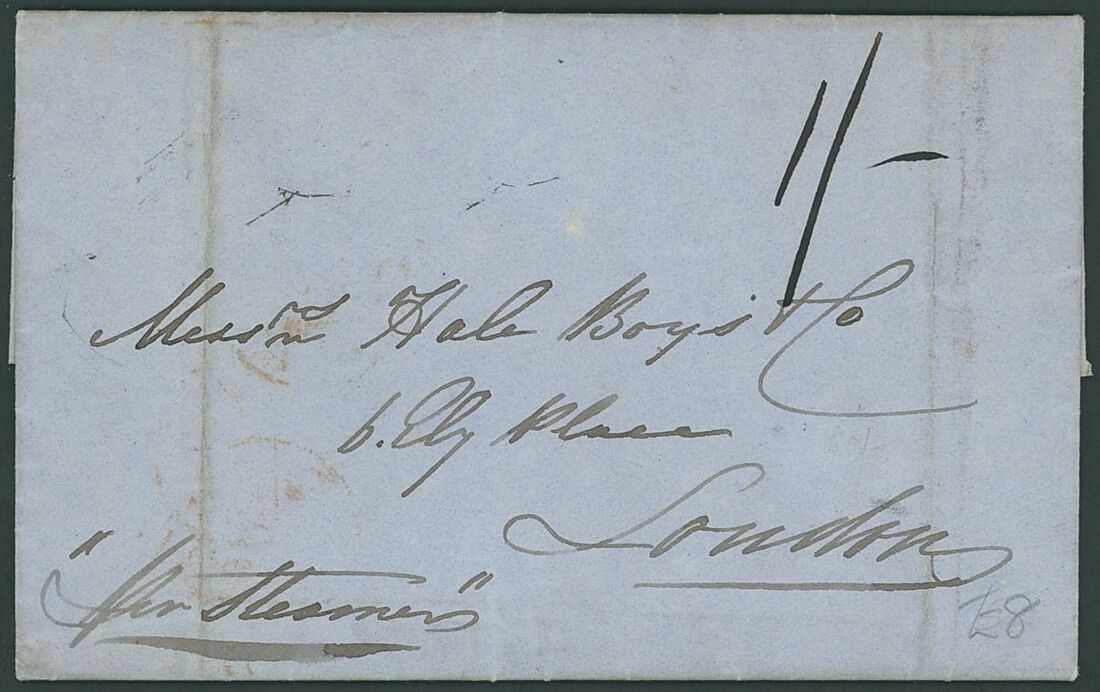 1/-
Messrs Hale Boys & Co
6. Ely Place
London
"Per Steamer"